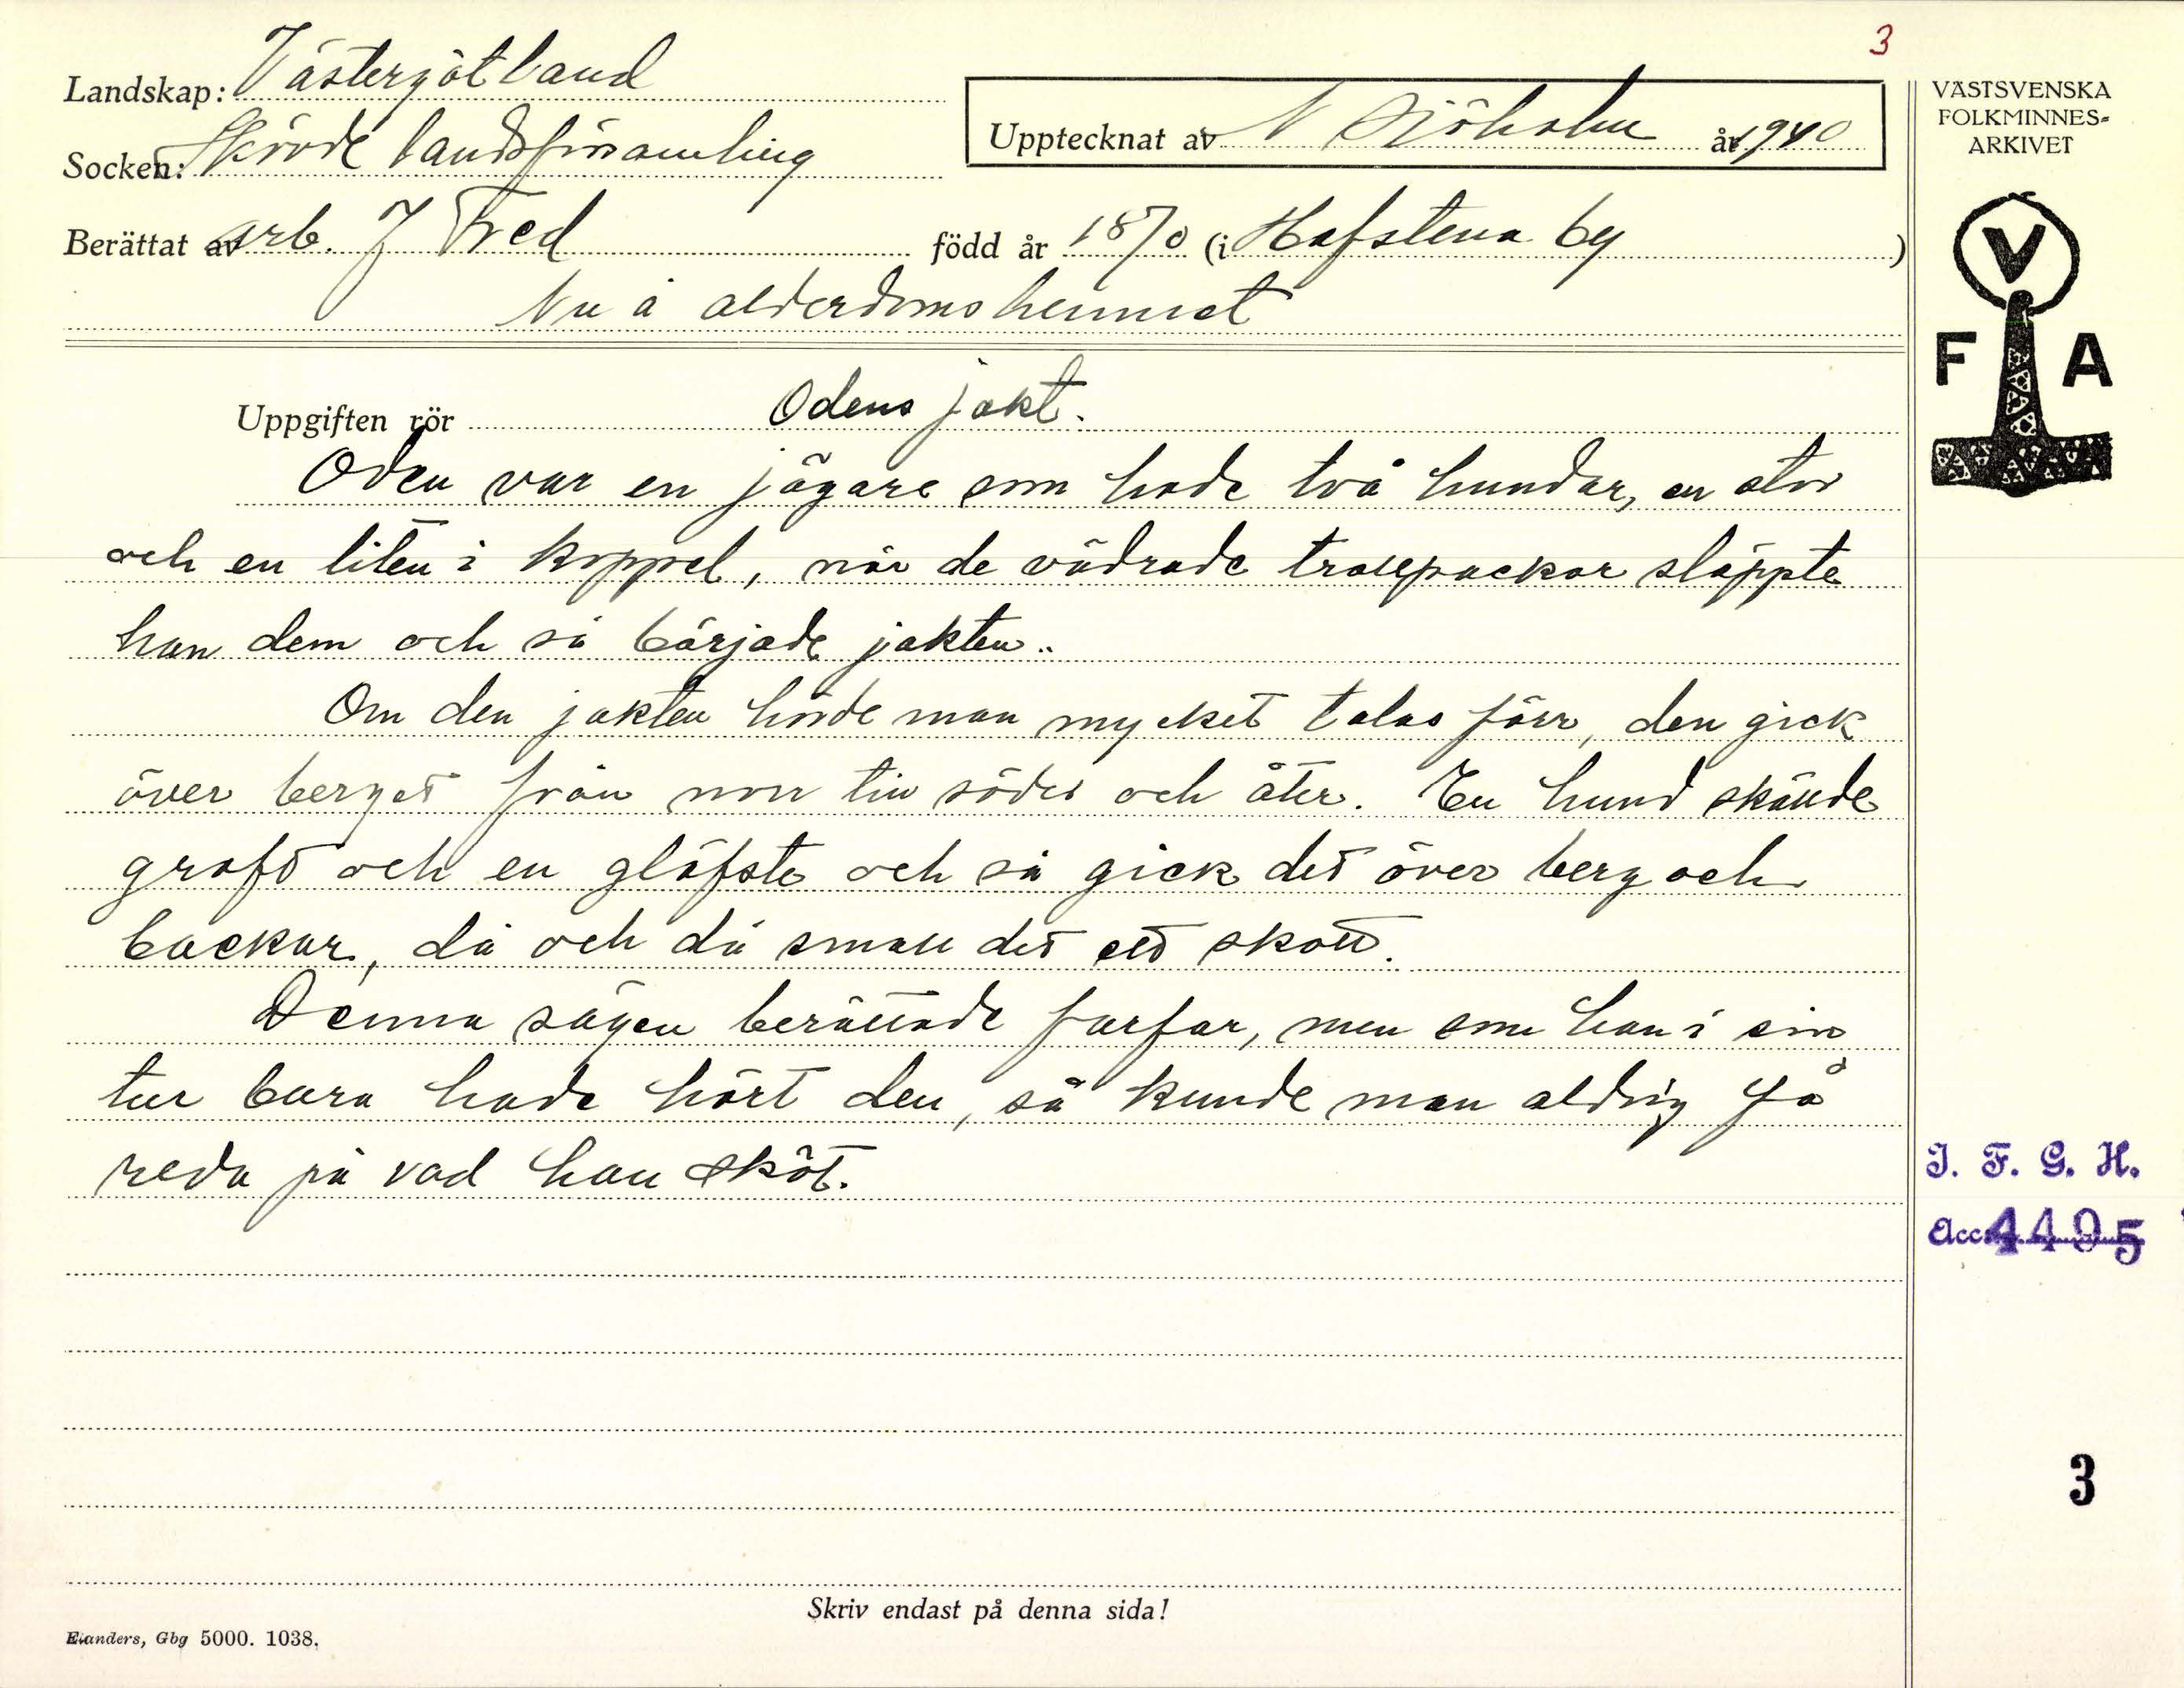 3
Landskap: Västergötland
Socken: Skövde landsförsamling
Upptecknat av N Sjöholm år 1940
Berättat av arb. J Fred född år 1870 (i Hafstena by)
Nu å alderdomshemmet
VÄSTSVENSKA
FOLKMINNES-
ARKIVET
V
F A
Uppgiften rör Odens jakt.
Oden var en jägare som hade två hundar, en stor
och en liten i koppel, när de vädrade trollpackor släppte
han dem och så började jakten.
Om den jakten hörde man mycket talas förr, den gick
över berget från norr till söder och åter. En hund skällde
groft och en gläfste och så gick det över berg och
backar, då och då small det ett skott.
Denna sägen berättade farfar, men som han i sin
tur bara hade hört den, så kunde man aldrig få
reda på vad han sköt.
I. F. G. H.
Acc. 4495
3
Skriv endast på denna sida!
Elanders, Gbg 5000. 1038.